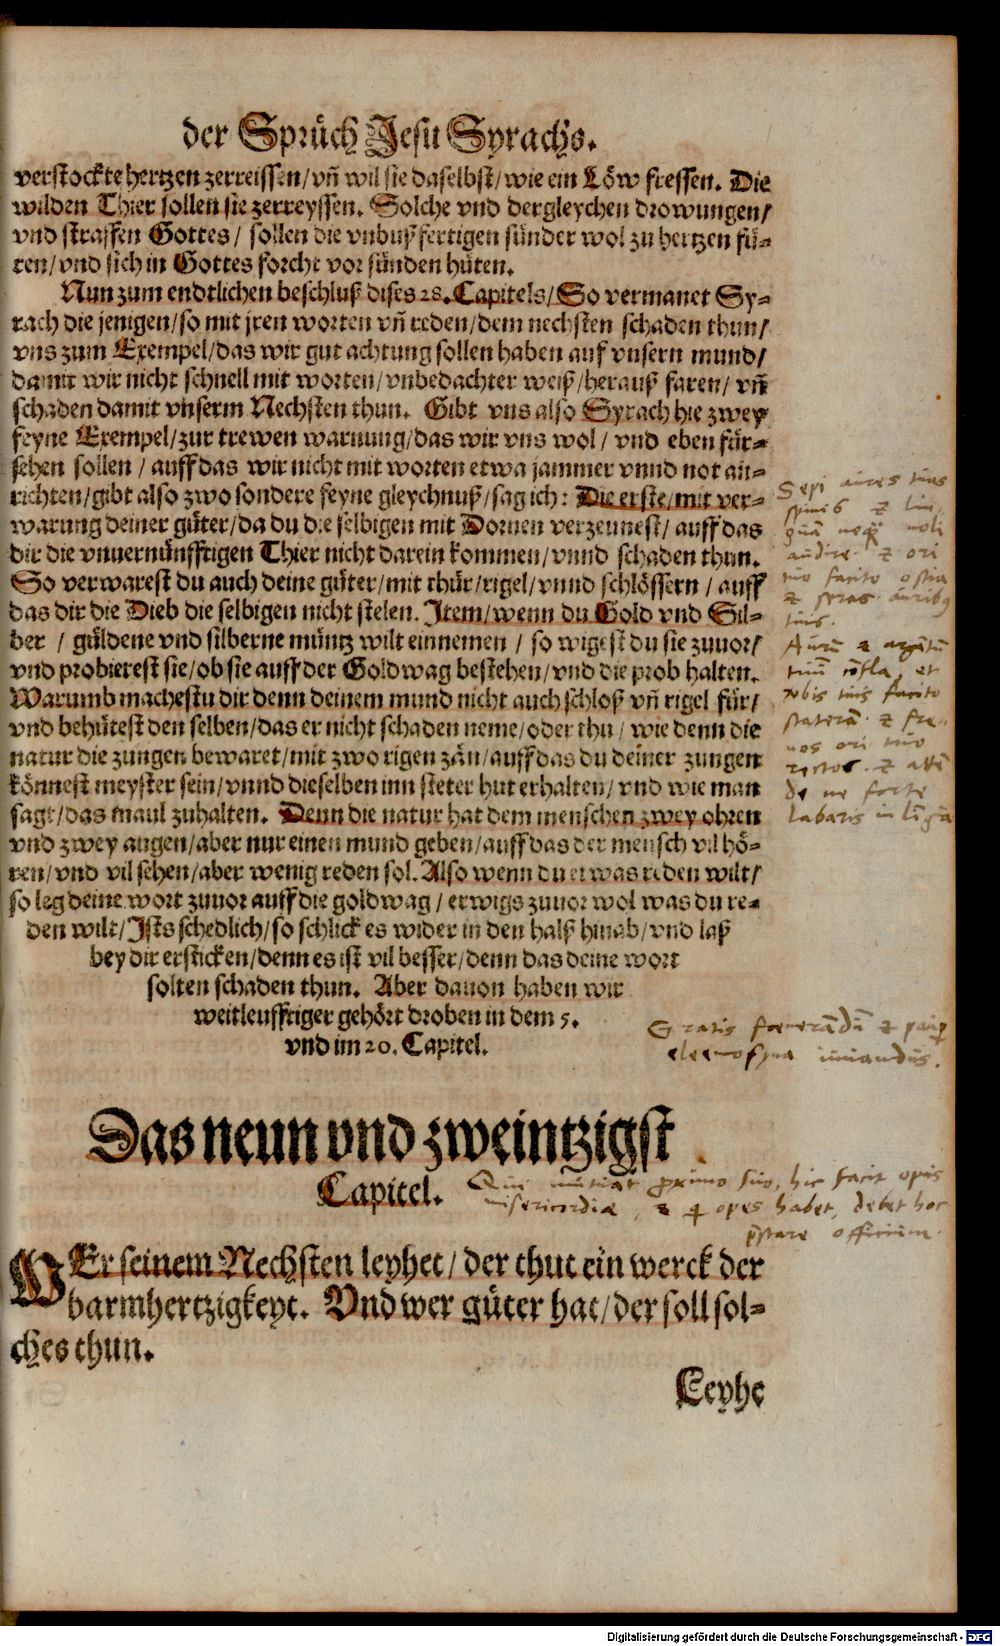 der Sprüch Jesu Syrachs.
verstockte hertzen zerreissen/ vñ wil sie daselbst/ wie ein Löw fressen. Die
wilden Thier sollen sie zerreyssen. Solche vnd dergleychen drowungen/
vnd straffen Gottes/ sollen die vnbußfertigen sünder wol zu hertzen fü-
ren/ vnd sich in Gottes forcht vor sünden hüten.
Nun zum endtlichen beschluß dises 28. Capitels/ So vermanet Sy-
rach die jenigen/ so mit jren worten vñ reden/ dem nechsten schaden thun/
vns zum Exempel/ das wir gut achtung sollen haben auf vnsern mund/
damit wir nicht schnell mit worten/ vnbedachter weiß/ herauß faren/ vñ
schaden damit vnserm Nechsten thun. Gibt vns also Syrach hie zwey
feyne Exempel/ zur trewen warnung/ das wir vns wol/ vnd eben für-
sehen sollen/ auff das wir nicht mit worten etwa jammer vnnd not an-
richten/ gibt also zwo sondere feyne gleychnuß/ sag ich: Die erste/ mit ver-
warung deiner güter/ da du die selbigen mit Dornen verzeunest/ auff das
dir die vnuernünfftigen Thier nicht darein kommen/ vnnd schaden thun.
So verwarest du auch deine güter/ mit thür/ rigel/ vnnd schlössern/ auff
das dir die Dieb die selbigen nicht stelen. Item/ wenn du Gold vnd Sil-
ber/ güldene vnd silberne müntz wilt einnemen/ so wigest du sie zuuor/
vnd probierest sie/ ob sie auff der Goldwag bestehen/ vnd die prob halten.
Warumb machestu dir denn deinem mund nicht auch schloß vñ rigel für/
vnd behütest den selben/ das er nicht schaden neme/ oder thu/ wie denn die
natur die zungen bewaret/ mit zwo rigen zän/ auff das du deiner zungen
könnest meyster sein/ vnnd dieselben inn steter hut erhalten/ vnd wie man
sagt/ das maul zuhalten. Denn die natur hat dem menschen zwey ohren
vnd zwey augen/ aber nur einen mund geben/ auff das der mensch vil hö-
ren/ vnd vil sehen/ aber wenig reden sol. Also wenn du etwas reden wilt/
so leg deine wort zuuor auff die goldwag/ erwigs zuuor wol was du re-
den wilt/ Ists schedlich/ so schlick es wider in den halß hinab/ vnd laß
bey dir ersticken/ denn es ist vil besser/ denn das deine wort
solten schaden thun. Aber dauon haben wir
weitleufftiger gehört droben in dem 5.
vnd im 20. Capitel.
Sepi aures tuas
spinis & lin-
guã neq̃ noli
audire. & ori
tuo facito ostia
& seras auribꝰ
tuis.
Aurũ & argẽtũ
tuũ cõfla, et
ṽbis tuis facito
staterã. & fre-
nos ori tuo
rectos. & attẽ
de ne forte
labaris in lĩgua
Gratis fœnerãdũ & paup
eleemosyna iuuandus.
Das neun vnd zweintzigst
Capitel.
Qui mutuat proximo suo, hic facit opus
misericordiæ, & qui opes habet, debet hoc
præstare officium.
WEr seinem Nechsten leyhet/ der thut ein werck der
barmhertzigkeyt. Vnd wer güter hat/ der soll sol-
ches thun.
Leyhe
Digitalisierung gefördert durch die Deutsche Forschungsgemeinschaft - DFG